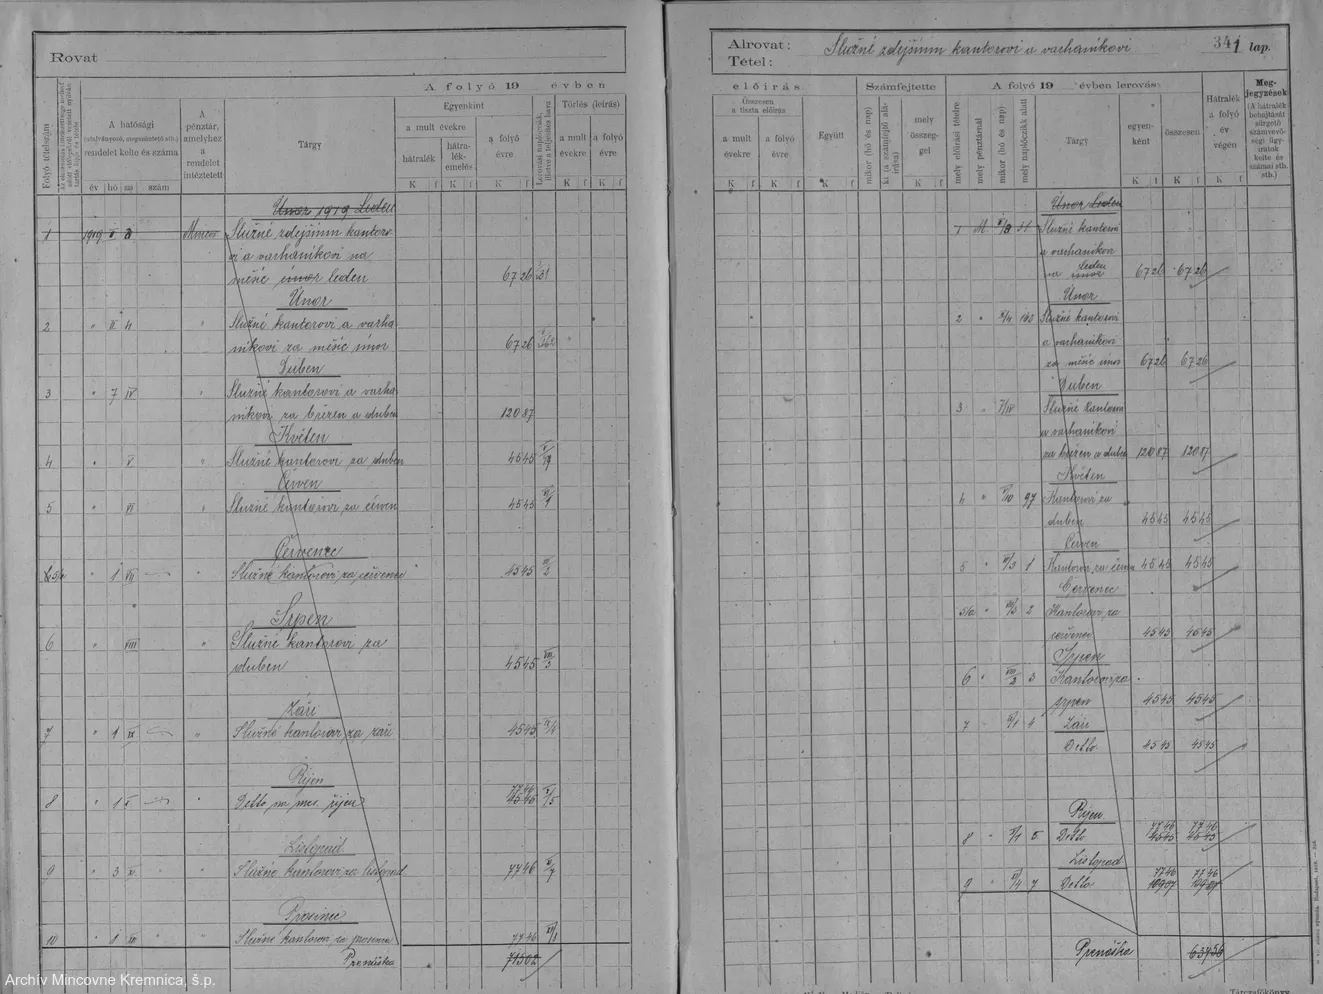 Rovat
A folyó 19 évben
Folyó tételszám
A hatósági
(utalványozó, megszüntető stb.)
rendelet kelte és száma
év hó nap szám
A pénztár, amelyhez a rendelet intéztetett
Tárgy
Egyenkint
a mult évekre
hátralék
hátralék-emelés
a folyó évre
Törlés (leirás)
a mult évekre
a folyó évre
K f K f K f K f K f
Únor 1919 Leden
1 1919 Mincov. Služné zdejším kanto-
vi a varhaníkovi na
měsíc únor leden 67 26 31
Únor
2 " II 4 " Služné kantorovi a varha-
níkovi za měsíc únor 67 26
Duben
3 " 7 IV " Služné kantorovi a varha-
níkovi za březen a duben 120 87
Květen
4 " V " Služné kantorovi za duben 45 45
Červen
5 " VI " Služné kantorovi za červen 45 45
Červenec
5/a " 1 VII Služné kantorovi za červenec 45 45
Srpen
6 " VIII " Služné kantorovi za
duben 45 45
Září
7 " 1 IX " Služné kantorovi za září 45 45
Říjen
77 46
8 " 1 X " Detto na měs. říjen 45 45
Listopad
9 " 3 XI " Služné kantorovi za listopad 77 46
Prosinec
10 " 1 XII " Služné kantorovi za prosinec 77 46
Prenáška 715 02
Alrovat: Služné zdejším kantorovi a varhaníkovi 341 lap.
Tétel:
előirás
Összesen a tiszta előirás
a mult évekre
a folyó évre
Együtt
Számfejtette
mikor (hó és nap)
ki (a számfejtő aláirása)
mely összeggel
A folyó 19 évben lerovás
mely előirási tételre
mely pénztárnál
mikor (hó és nap)
mely naplócikk alatt
Tárgy
egyenként
összesen
Hátralék a folyó év végén
Megjegyzések
(A hátralék behajtását sürgető számvevőségi ügyiratok kelte és számai stb. stb.)
K f K f K f K f K f K f K f
Únor Leden
1 M. Služné kantorovi
a varhaníkovi
na Leden únor 67 26 67 26
Únor
2 " II/4 162 Služné kantorovi
a varhaníkovi
za měsíc únor 67 26 67 26
Duben
3 " 7/IV Služné kantorovi
a varhaníkovi
za březen a duben 120 87 120 87
Květen
4 " 97 Kantorovi za
duben 45 45 45 45
Červen
5 " 1 Kantorovi za červen 45 45 45 45
Červenec
5/a " 2 Kantorovi za
červenec 45 45 45 45
Srpen
6 " 3 Kantorovi za
srpen 45 45 45 45
7 4 Září
Detto 45 45 45 45
Říjen
77 46 77 46
8 " Detto 45 45 45 45
Listopad
77 46 77 46
9 " 7 Detto 109 07
Prenáška 637 56
Archív Mincovne Kremnica, š.p.
Tárczafőkönyv